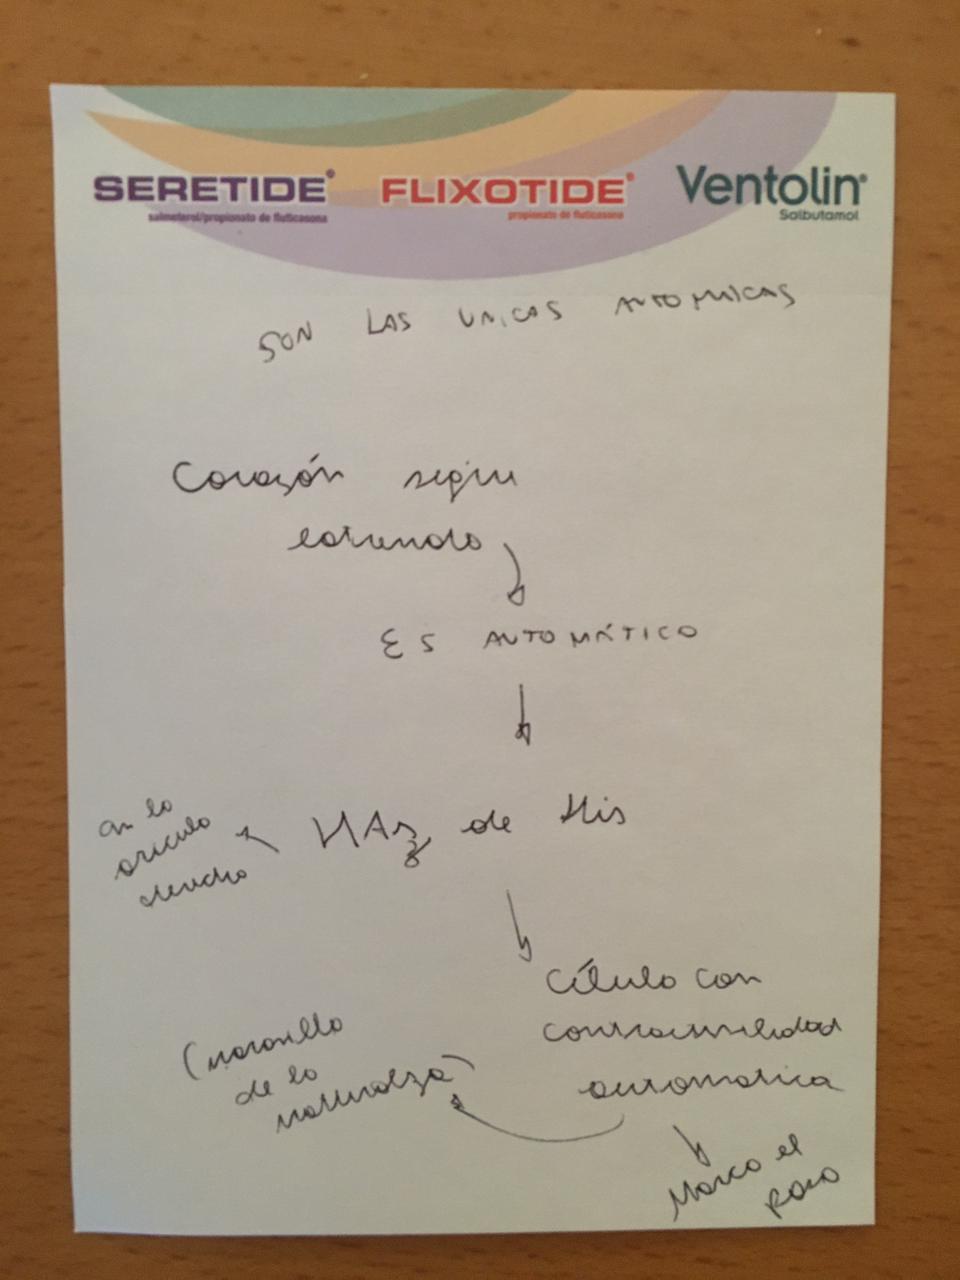 SERETIDE®
salmeterol/propionato de fluticasona
FLIXOTIDE®
propionato de fluticasona
Ventolin®
Salbutamol
SON LAS UNICAS AUTOMICAS
Corazón sigue
latiendo
ES AUTOMÁTICO
en la
aricula
derecha
HAz de His
Célula con
contractilidad
automatica
(maravilla
de la
naturalza)
Marca el
paso